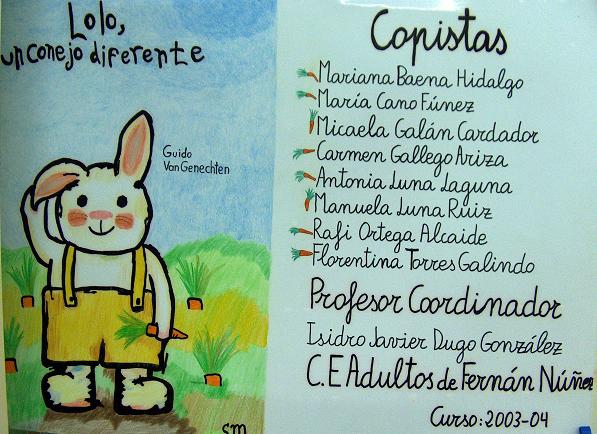 Lolo,
un conejo diferente
Guido
Van Genechten
sm
Copistas
Mariana Baena Hidalgo
María Cano Fúnez
Micaela Galán Cardador
Carmen Gallego Ariza
Antonia Luna Laguna
Manuela Luna Ruiz
Rafi Ortega Alcaide
Florentina Torres Galindo
Profesor Coordinador
Isidro Javier Dugo González
C.E Adultos de Fernán Núñez
Curso: 2003-04